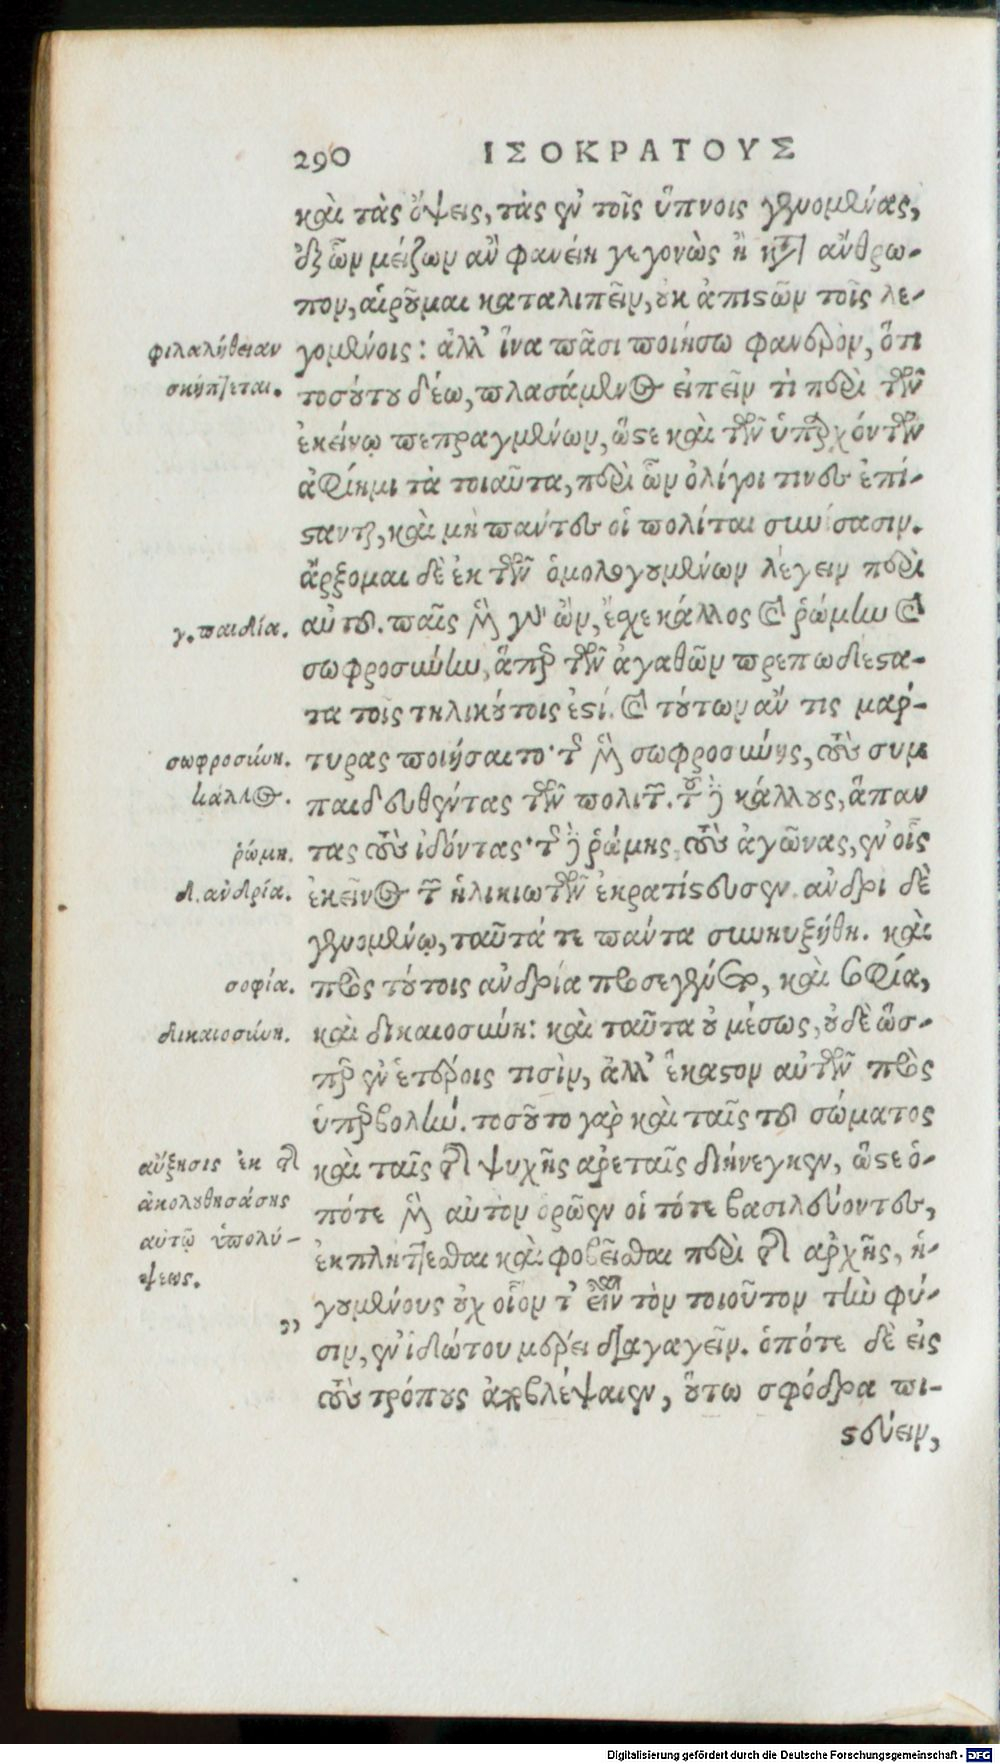 290 ΙΣΟΚΡΑΤΟΥΣ
καὶ τὰς ὄψεις, τὰς ἐν τοῖς ὕπνοις γενομένας,
ἐξ ὧν μείζων ἂν φανείη γεγονὼς ἢ κατὰ ἄνθρω-
πον, αἱροῦμαι καταλιπεῖν, οὐκ ἀπιστῶν τοῖς λε-
φιλαλήθειαν
γομένοις: ἀλλ' ἵνα πᾶσι ποιήσω φανερὸν, ὅτι
σκήπτεται.
τοσούτου δέω, πλασάμενος εἰπεῖν τὶ περὶ τῶν
ἐκείνῳ πεπραγμένων, ὥστε καὶ τῶν ὑπαρχόντων
ἀφίημι τὰ τοιαῦτα, περὶ ὧν ὀλίγοι τινες ἐπί-
σταντ, καὶ μὴ πάντες οἱ πολῖται συνίσασιν.
ἄρξομαι δὲ ἐκ τῶν ὁμολογουμένων λέγειν περὶ
γ. παιδία.
αὐτοῦ. παῖς μὲν γὰρ ὢν, ἔσχε κάλλος καὶ ῥώμην καὶ
σωφροσύνην, ἅπερ τῶν ἀγαθῶν πρεπωδέστα-
τα τοῖς τηλικούτοις ἐστί. καὶ τούτων ἄν τις μάρ-
σωφροσύνη.
τυρας ποιήσαιτο· τῆς μὲν σωφροσύνης, τοὺς συμ
κάλλος.
παιδευθέντας τῶν πολιτῶν. τοῦ δὲ κάλλους, ἅπαν
ῥώμη.
τας τοὺς ἰδόντας· τῆς δὲ ῥώμης, τοὺς ἀγῶνας, ἐν οἷς
δ. ἀνδρία.
ἐκεῖνος τῶν ἡλικιωτῶν ἐκρατίστευσεν. ἀνδρὶ δὲ
γενομένῳ, ταῦτά τε πάντα συνηυξήθη. καὶ
σοφία.
πρὸς τούτοις ἀνδρία προσεγένετο, καὶ σοφία,
δικαιοσύνη.
καὶ δικαιοσύνη: καὶ ταῦτα οὐ μέσως, οὐδὲ ὥσ-
περ ἐν ἑτέροις τισὶν, ἀλλ' ἕκαστον αὐτῶν πρὸς
ὑπερβολήν. τοσοῦτο γὰρ καὶ ταῖς τοῦ σώματος
αὔξησις ἐκ τῆς
καὶ ταῖς τῆς ψυχῆς ἀρεταῖς διήνεγκεν, ὥστε ὁ-
ἀκολουθησάσης
πότε μὲν αὐτὸν ὁρῷεν οἱ τότε βασιλεύοντες,
αὐτῷ ὑπολή-
ἐκπλήττεσθαι καὶ φοβεῖσθαι περὶ τῆς ἀρχῆς, ἡ-
ψεως.
γουμένους οὐχ οἷόν τ' εἶναι τὸν τοιοῦτον τὴν φύ-
,, σιν, ἐν ἰδιώτου μέρει διαγαγεῖν. ὁπότε δὲ εἰς
τοὺς τρόπους ἀποβλέψαιεν, οὕτω σφόδρα πι-
στεύειν,
Digitalisierung gefördert durch die Deutsche Forschungsgemeinschaft - DFG